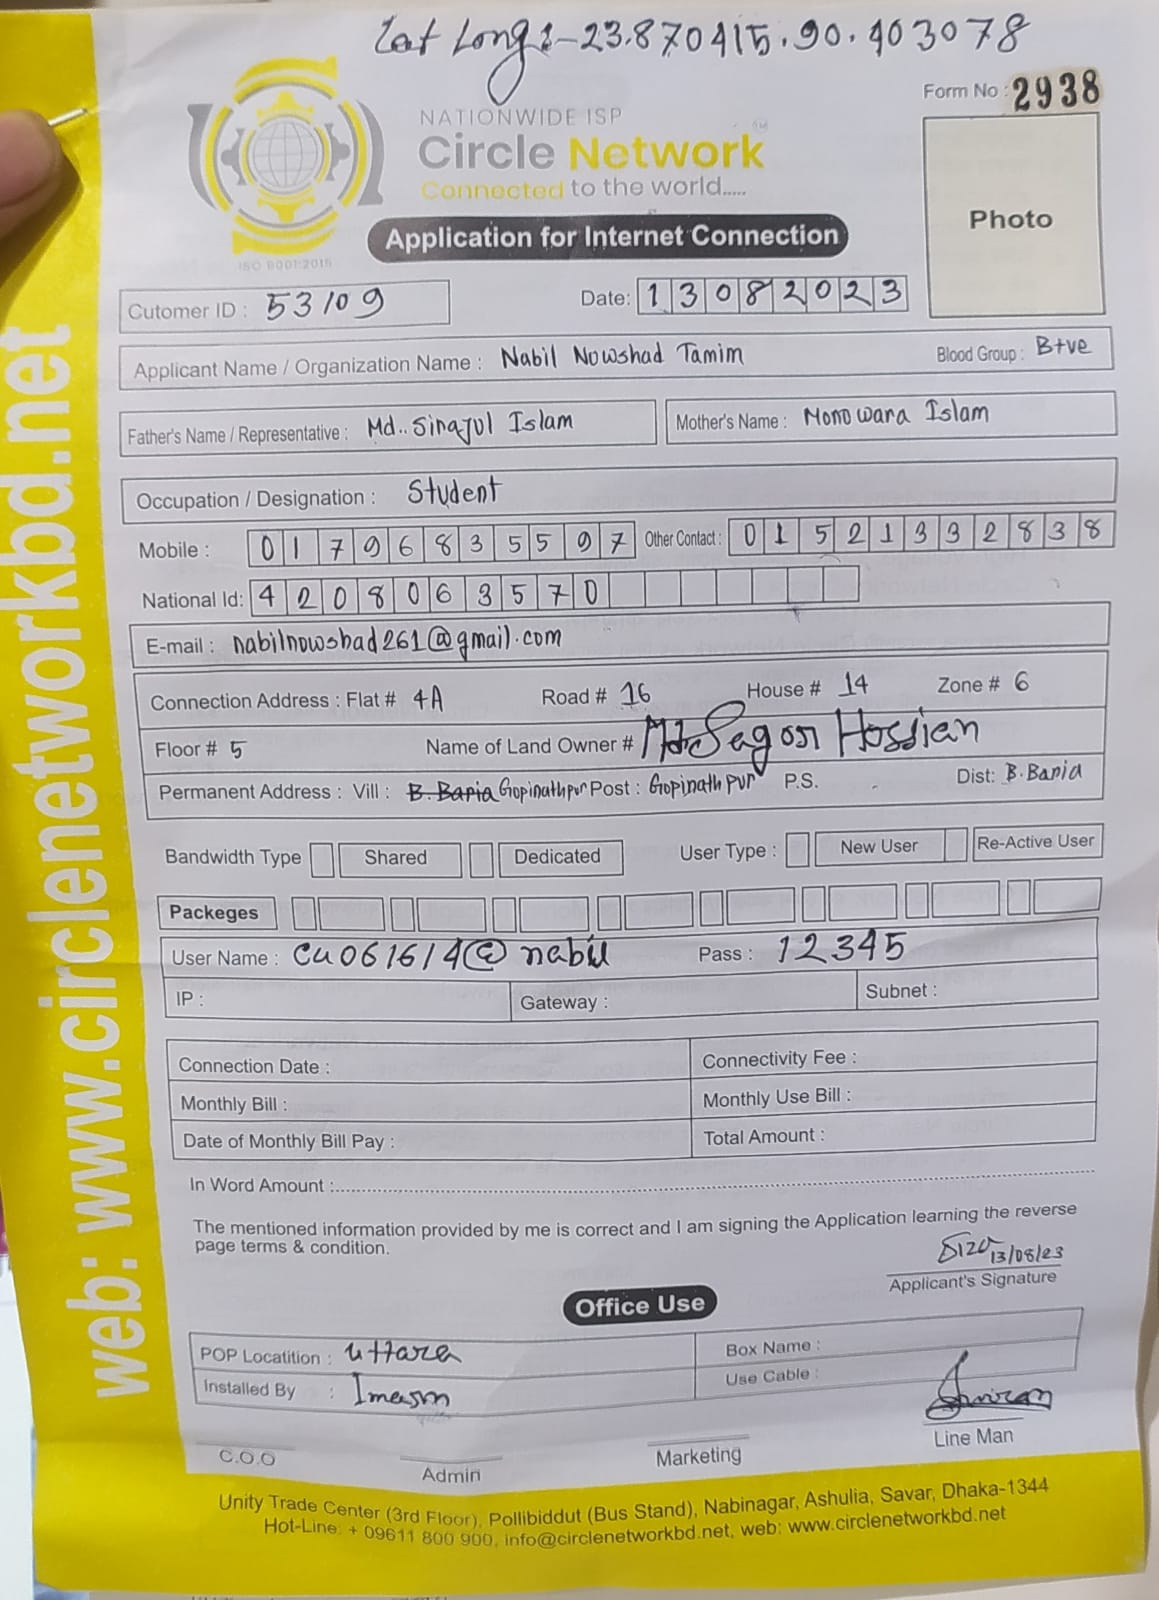 Lat Long:-23.870415.90.403078
Form No : 2938
NATIONWIDE ISP
Circle Network TM
Connected to the world.....
ISO 9001:2015
Application for Internet Connection
Photo
Cutomer ID : 53109
Date: 13082023
Applicant Name / Organization Name : Nabil Nowshad Tamim Blood Group : B+ve
Father's Name / Representative : Md.. Sirajul Islam Mother's Name : Monowara Islam
Occupation / Designation : Student
Mobile : 01796835597 Other Contact : 01521332838
National Id: 4208063570
E-mail : nabilnowshad261@gmail.com
Connection Address : Flat # 4A Road # 16 House # 14 Zone # 6
Floor # 5 Name of Land Owner # Md. Sagor Hossian
Permanent Address : Vill : B. Baria Gopinathpur Post : Gopinathpur P.S. Dist: B. Baria
Bandwidth Type Shared Dedicated User Type : New User Re-Active User
Packeges
User Name : cu061614@nabil Pass : 12345
IP : Gateway : Subnet :
Connection Date : Connectivity Fee :
Monthly Bill : Monthly Use Bill :
Date of Monthly Bill Pay : Total Amount :
In Word Amount :
The mentioned information provided by me is correct and I am signing the Application learning the reverse
page terms & condition.
13/08/23
Applicant's Signature
Office Use
POP Locatition : Uttara Box Name :
Installed By : Use Cable :
C.O.O Admin Marketing Line Man
Unity Trade Center (3rd Floor), Pollibiddut (Bus Stand), Nabinagar, Ashulia, Savar, Dhaka-1344
Hot-Line: + 09611 800 900, info@circlenetworkbd.net, web: www.circlenetworkbd.net
web: www.circlenetworkbd.net